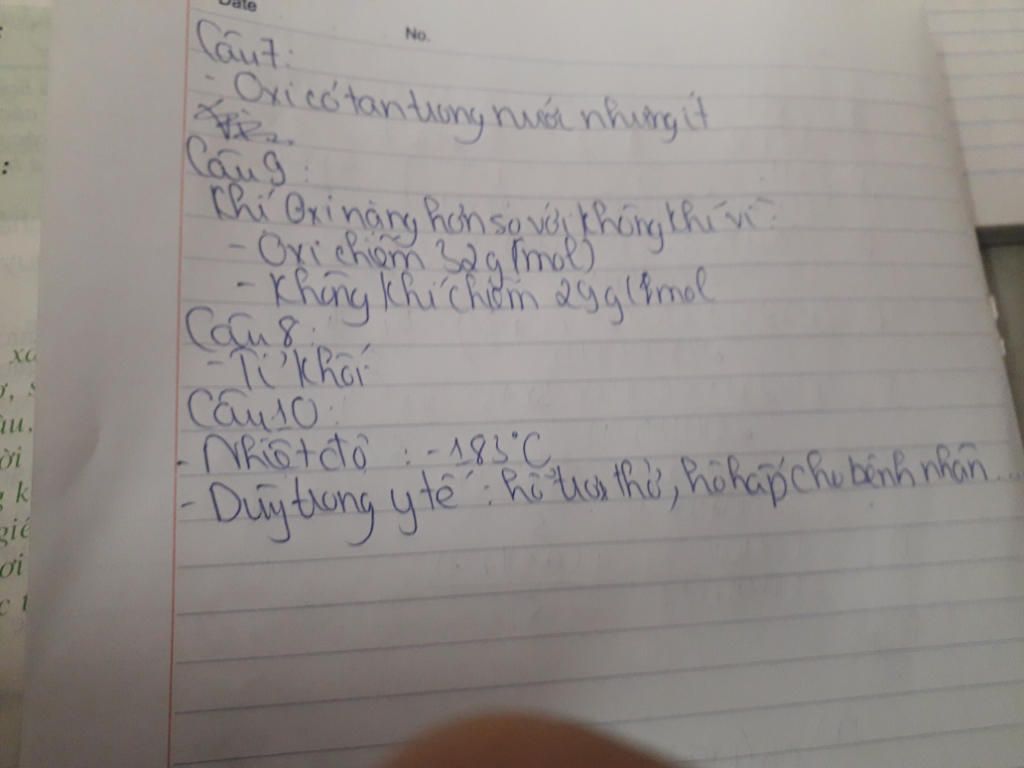 Date
No.
Câu 7:
- Oxi có tan trong nước nhưng ít
Câu 9:
Khí Oxi nặng hơn so với không khí vì:
- Oxi chiếm 32g (mol)
- Không khí chiếm 29g (1mol
Câu 8:
- Tỉ khối
Câu 10:
- Nhiệt độ : -183°C
- Dùng trong y tế : hỗ trợ thở, hô hấp cho bệnh nhân...